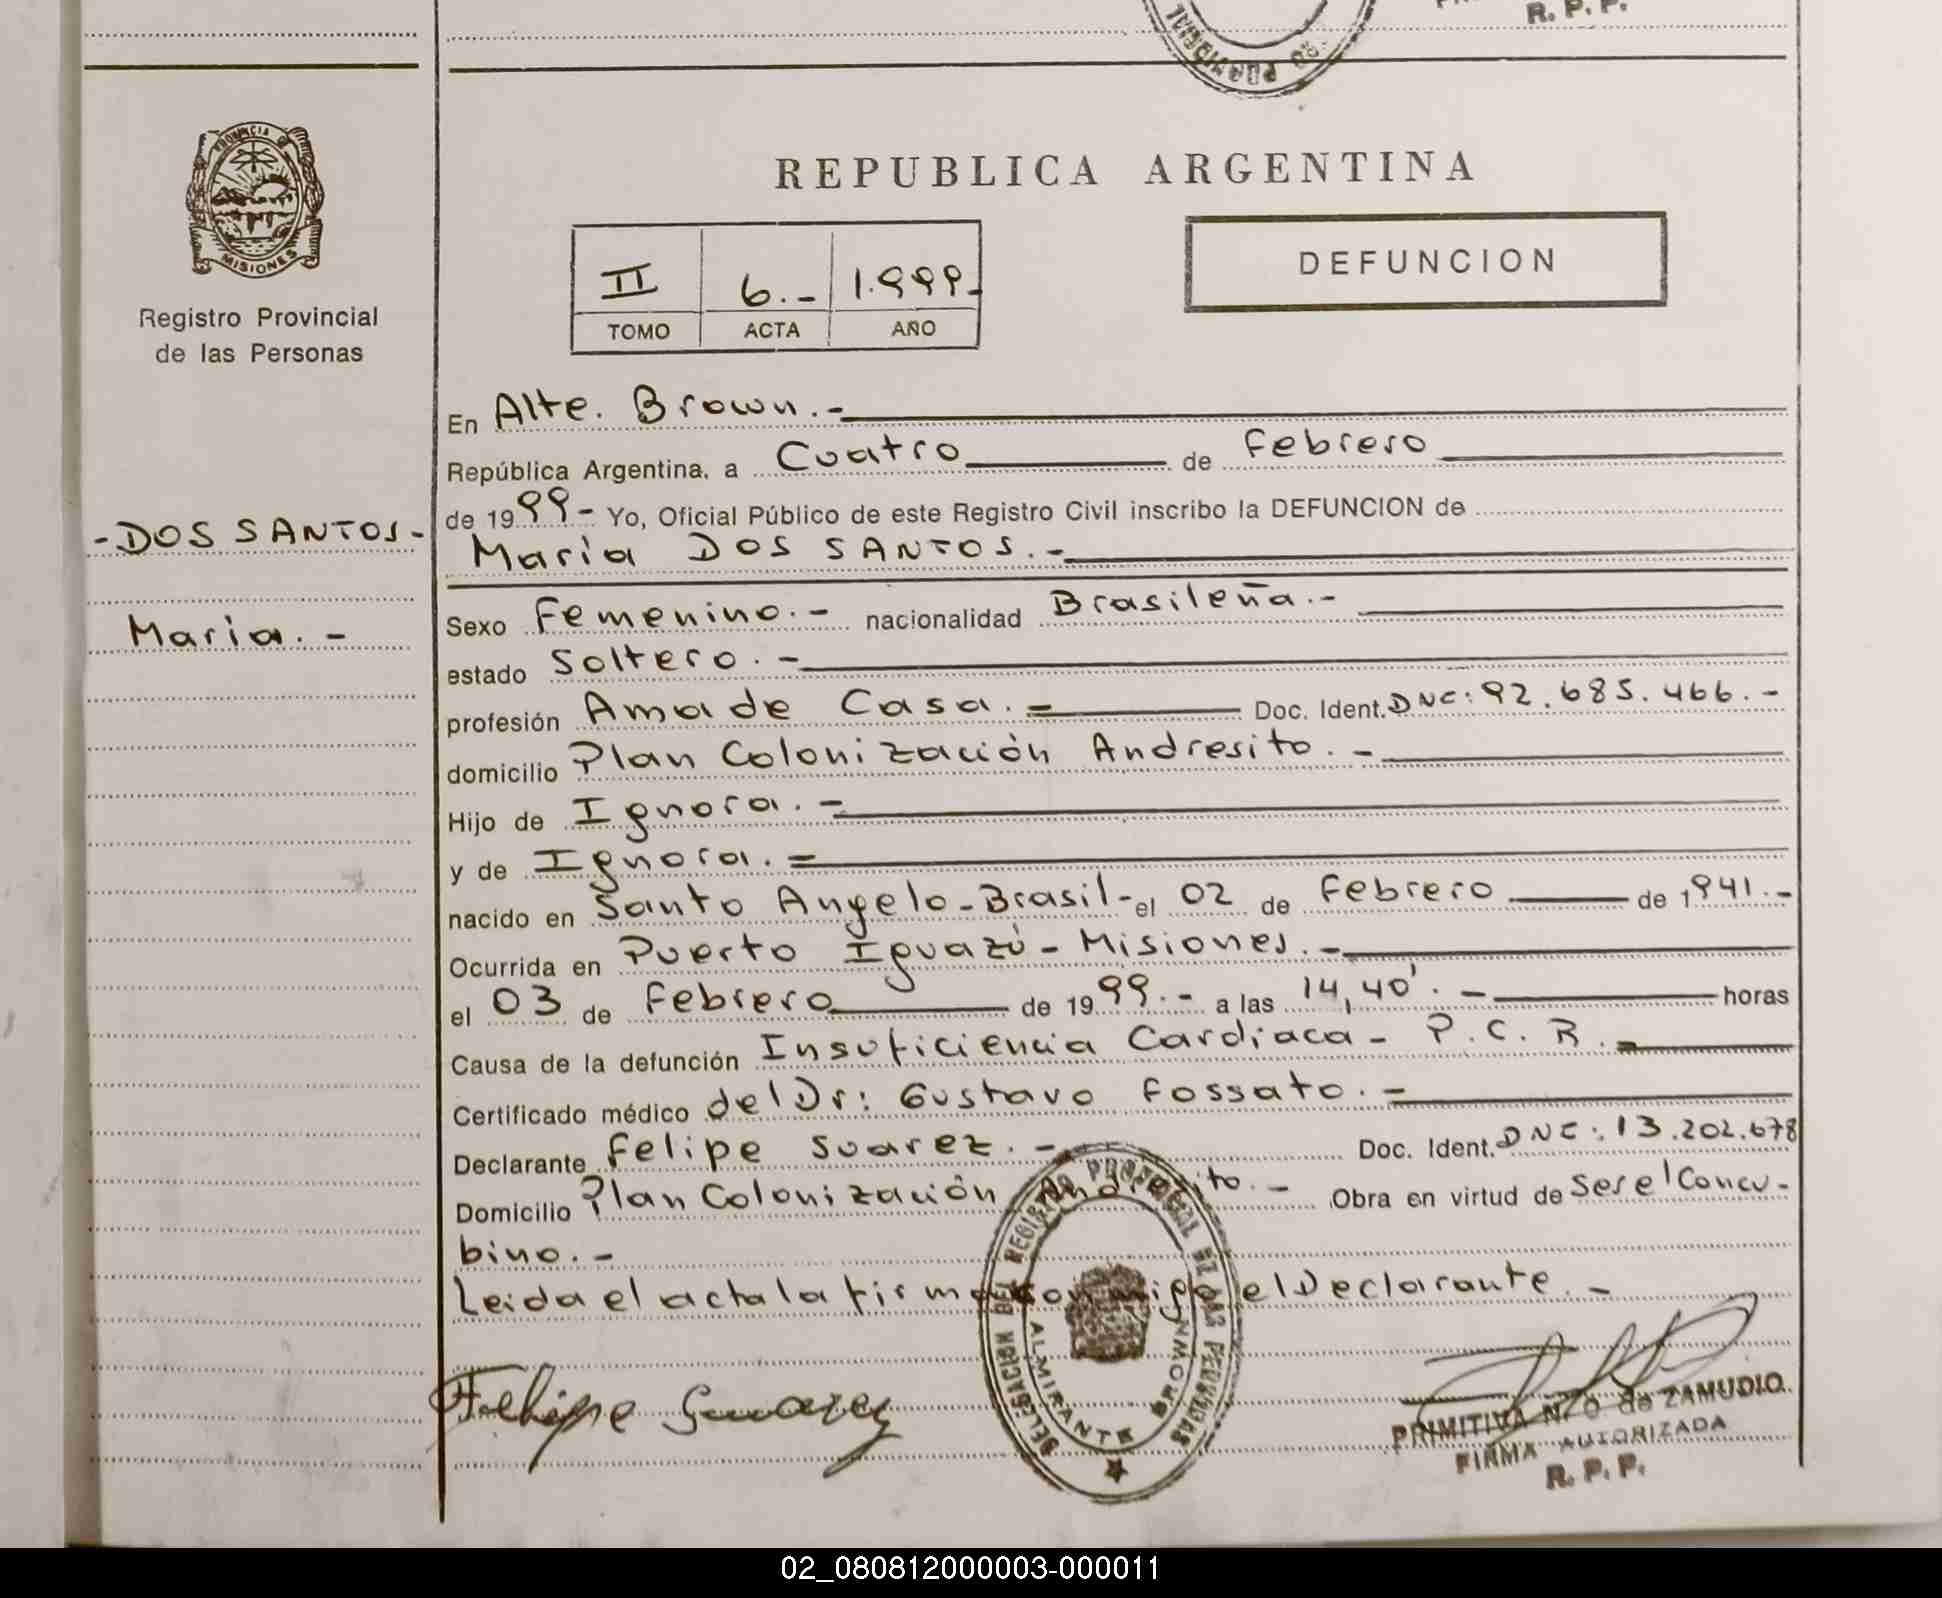 R. P. P.
PROVINCIA DE
MISIONES
Registro Provincial
de las Personas
-DOS SANTOS-
Maria.-
REPUBLICA ARGENTINA
II 6.- 1.999-
TOMO ACTA AÑO
DEFUNCION
En Alte. Brown.-
República Argentina, a Cuatro de Febrero
de 1999- Yo, Oficial Público de este Registro Civil inscribo la DEFUNCION de
Maria DOS SANTOS.-
Sexo Femenino.- nacionalidad Brasileña.-
estado Soltero.-
profesión Ama de Casa.- Doc. Ident. DNC: 92.685.466.-
domicilio Plan Colonización Andresito.-
Hijo de Ignora.-
y de Ignora.=
nacido en Santo Angelo-Brasil- el 02 de Febrero de 1941.-
Ocurrida en Puerto Iguazú - Misiones.-
el 03 de Febrero de 1999.- a las 14,40'.- horas
Causa de la defunción Insuficiencia Cardiaca - P.C.R.-
Certificado médico del Dr: Gustavo Fossato.-
Declarante Felipe Suarez.- Doc. Ident. DNC: 13.202.678
Domicilio Plan Colonización Andresito.- Obra en virtud de Ser el Concu-
bino.-
Leida el acta la firma conmigo el Declarante.-
Felipe Suarez
DELEGACION DEL REGISTRO PROVINCIAL DE LAS PERSONAS
ALMIRANTE BROWN
PRIMITIVA N. O de ZAMUDIO
FIRMA AUTORIZADA
R. P. P.
02_080812000003-000011